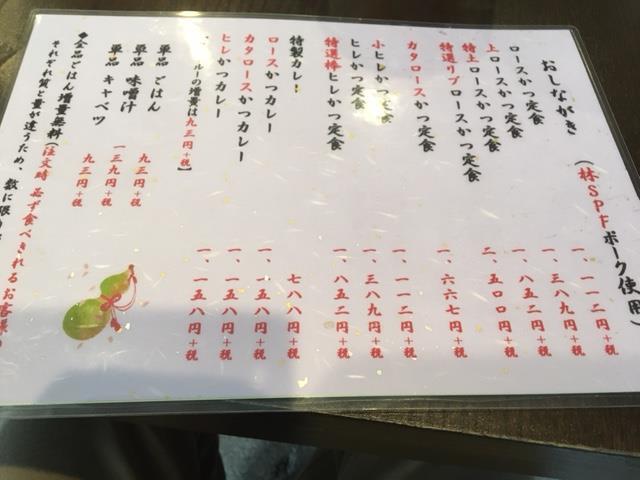 おしながき (林SPFポーク使用)
ロースかつ定食 一、一一二円+税
上ロースかつ定食 一、三八九円+税
特上ロースかつ定食 一、八五二円+税
特選リブロースかつ定食 二、五〇〇円+税
カタロースかつ定食 一、六六七円+税
小ヒレかつ定食 一、一一二円+税
ヒレかつ定食 一、三八九円+税
特選棒ヒレかつ定食 一、八五二円+税
特製カレー 七八八円+税
ロースかつカレー 一、一五八円+税
カタロースかつカレー 一、一五八円+税
ヒレかつカレー 一、一五八円+税
ルーの増量は九三円+税】
単品 ごはん 九三円+税
単品 味噌汁 一三九円+税
単品 キャベツ 九三円+税
◆全品ごはん増量無料(注文時 必ず食べきれるお客様の
それぞれ質と量が違うため、数に限